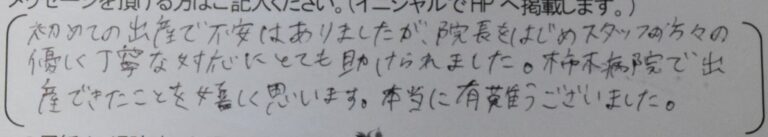 メッセージを頂ける方はご記入ください。(イニシャルでHPへ掲載します。)
初めての出産で不安はありましたが、院長をはじめスタッフの方々の
優しく丁寧な対応にとても助けられました。柿木病院で出
産できたことを嬉しく思います。本当に有難うございました。